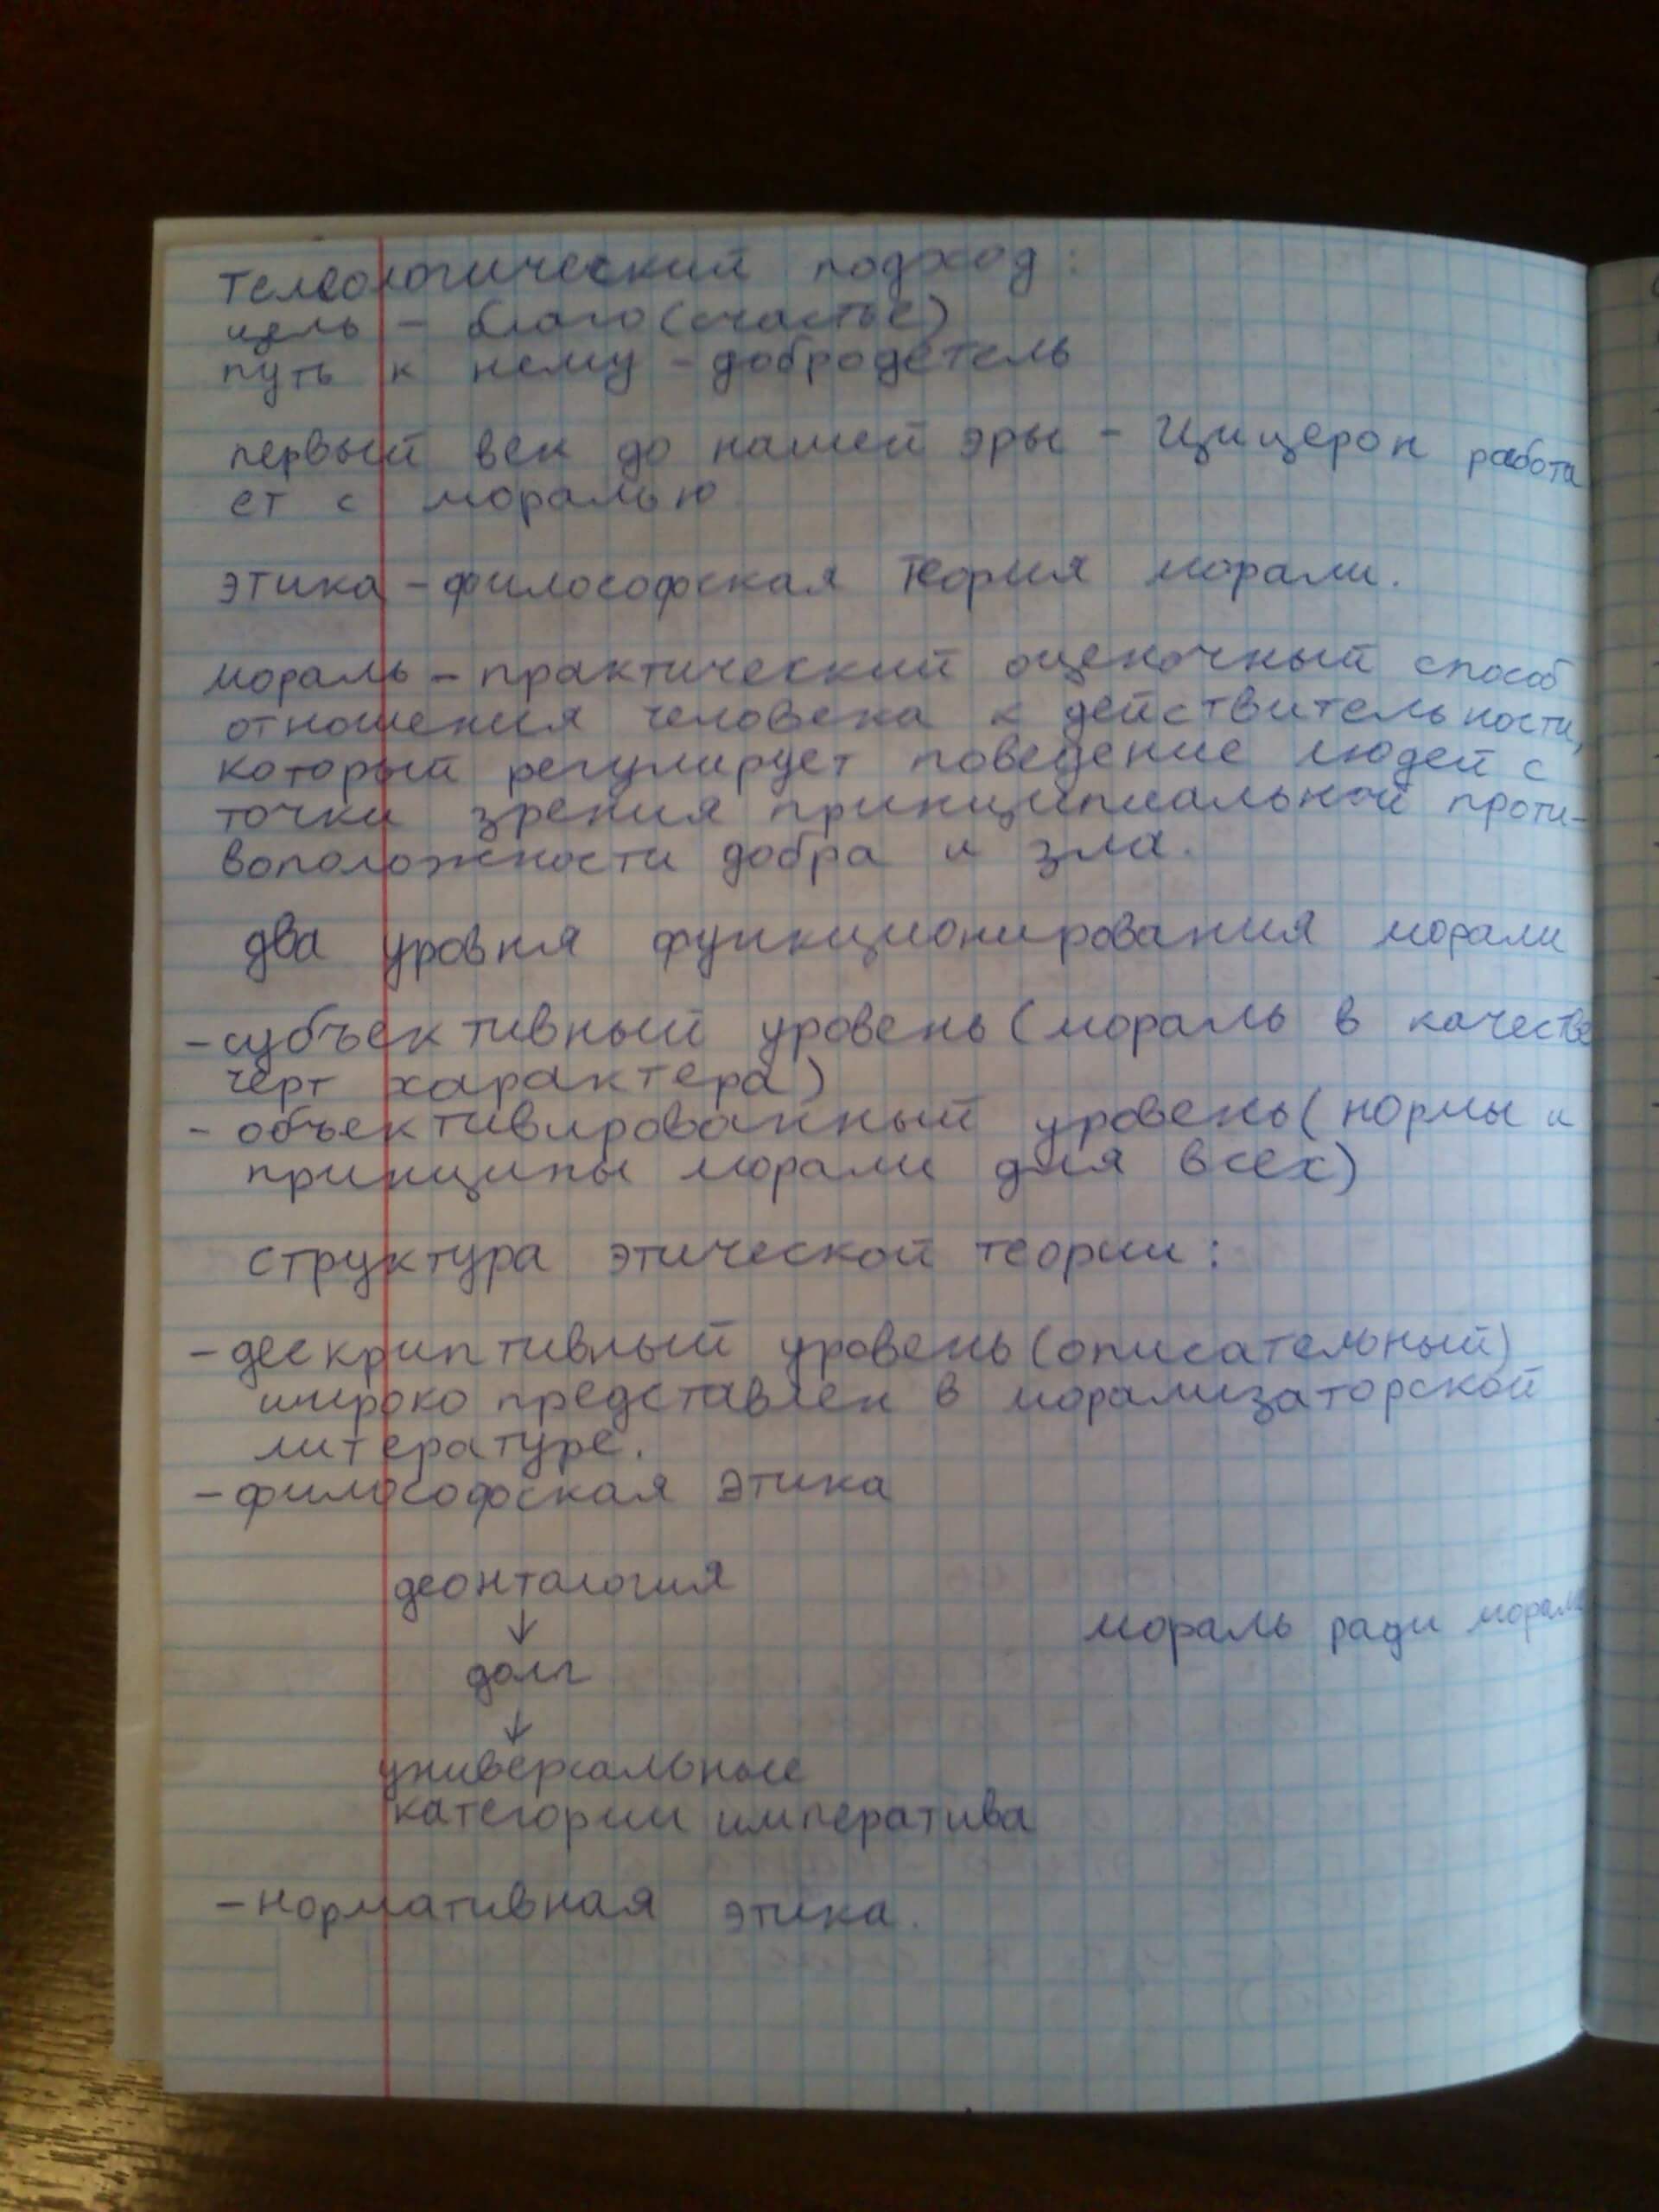 телеологический подход:
цель - благо (счастье)
путь к нему - добродетель
первый век до нашей эры - Цицерон работа
ет с моралью
этика - философская теория морали.
мораль - практический оценочный способ
отношения человека к действительности,
который регулирует поведение людей с
точки зрения принципиальной проти-
воположности добра и зла.
два уровня функционирования морали
- субъективный уровень (мораль в качестве
черт характера)
- объективированный уровень (нормы и
принципы морали для всех)
структура этической теории:
- дескриптивный уровень (описательный)
широко представлен в морализаторской
литературе.
- философская этика
деонтология
↓
мораль ради морали
долг
↓
универсальные
категории императива
- нормативная этика.